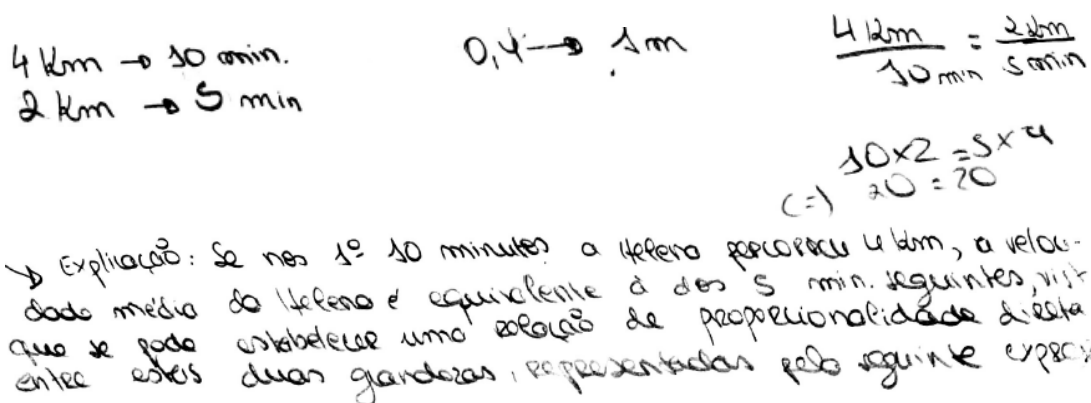 4 Km → 10 min.
2 Km → 5 min
0,4 → 1 m
4 Km / 10 min = 2 Km / 5 min
10 x 2 = 5 x 4
(=) 20 = 20
↘ Explicação: Se nos 1º 10 minutos a Helena percorreu 4 km, a veloci-
dade média da Helena é equivalente à dos 5 min. seguintes, vist
que se pode estabelecer uma relação de proporcionalidade direta
entre estas duas grandezas, representadas pela seguinte expres